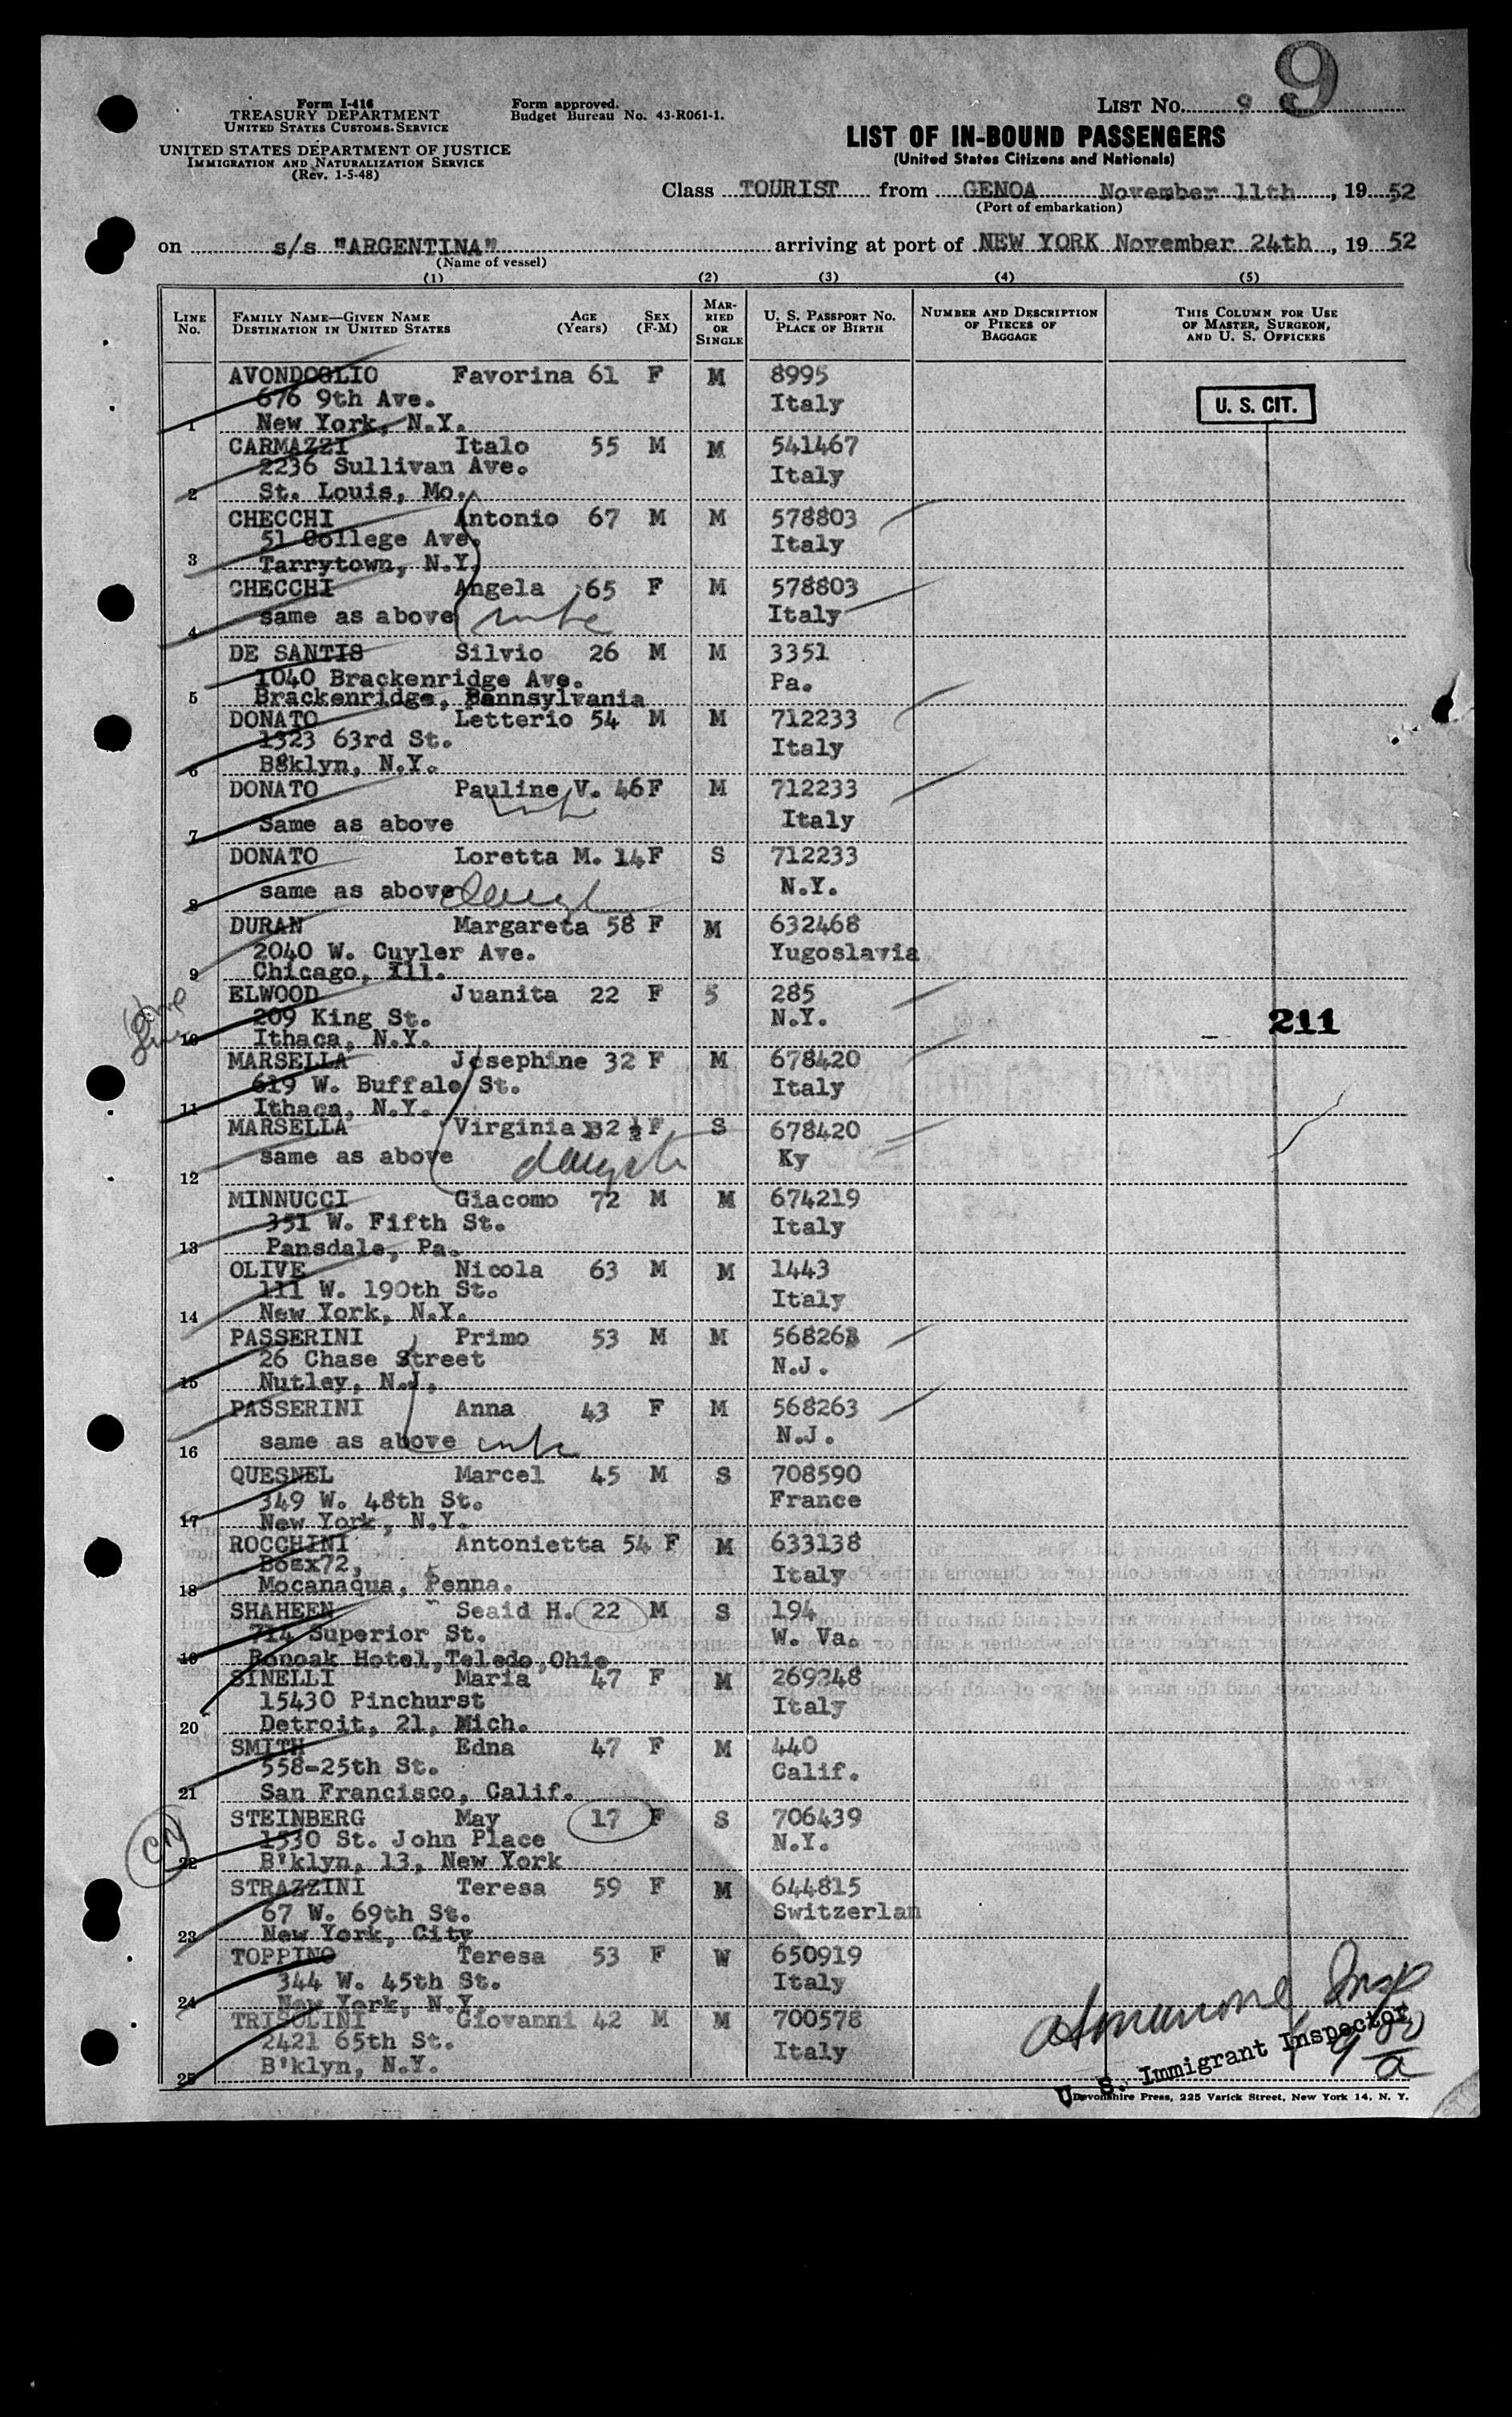 9
Form I-416
TREASURY DEPARTMENT
UNITED STATES CUSTOMS SERVICE
UNITED STATES DEPARTMENT OF JUSTICE
IMMIGRATION AND NATURALIZATION SERVICE
(Rev. 1-5-48)
Form approved.
Budget Bureau No. 43-R061-1.
LIST NO. 9
LIST OF IN-BOUND PASSENGERS
(United States Citizens and Nationals)
Class TOURIST from GENOA November 11th, 1952
(Port of embarkation)
on s/s "ARGENTINA" arriving at port of NEW YORK November 24th, 1952
(Name of vessel)
(1) (2) (3) (4) (5)
LINE No. FAMILY NAME—GIVEN NAME DESTINATION IN UNITED STATES AGE (Years) SEX (F-M) MARRIED OR SINGLE U. S. PASSPORT NO. PLACE OF BIRTH NUMBER AND DESCRIPTION OF PIECES OF BAGGAGE THIS COLUMN FOR USE OF MASTER, SURGEON, AND U. S. OFFICERS
AVONDOGLIO Favorina 61 F M 8995
676 9th Ave. Italy U. S. CIT.
1 New York, N.Y.
CARMAZZI Italo 55 M M 541467
2236 Sullivan Ave. Italy
2 St. Louis, Mo.
CHECCHI Antonio 67 M M 578803
51 College Ave. Italy
3 Tarrytown, N.Y.
CHECCHI Angela 65 F M 578803
4 same as above wife Italy
DE SANTIS Silvio 26 M M 3351
1040 Brackenridge Ave. Pa.
5 Brackenridge, Pennsylvania
DONATO Letterio 54 M M 712233
1323 63rd St. Italy
6 B'klyn, N.Y.
DONATO Pauline V. 46 F M 712233
wife
7 Same as above Italy
DONATO Loretta M. 14 F S 712233
8 same as above daugh N.Y.
DURAN Margareta 58 F M 632468
2040 W. Cuyler Ave. Yugoslavia
9 Chicago, Ill.
ELWOOD Juanita 22 F S 285
209 King St. N.Y. 211
10 Ithaca, N.Y.
MARSELLA Josephine 32 F M 678420
619 W. Buffalo St. Italy
11 Ithaca, N.Y.
MARSELLA Virginia 2 ½ F S 678420
12 same as above daught Ky
MINNUCCI Giacomo 72 M M 674219
351 W. Fifth St. Italy
13 Pansdale, Pa.
OLIVE Nicola 63 M M 1443
111 W. 190th St. Italy
14 New York, N.Y.
PASSERINI Primo 53 M M 568263
26 Chase Street N.J.
15 Nutley, N.J.
PASSERINI Anna 43 F M 568263
16 same as above wife N.J.
QUESNEL Marcel 45 M S 708590
349 W. 48th St. France
17 New York, N.Y.
ROCCHINI Antonietta 54 F M 633138
Box 72, Italy
18 Mocanaqua, Penna.
SHAHEEN Seaid H. 22 M S 194
714 Superior St. W. Va.
19 Bonoak Hotel, Toledo, Ohio
SINELLI Maria 47 F M 269348
15430 Pinchurst Italy
20 Detroit, 21, Mich.
SMITH Edna 47 F M 440
558-25th St. Calif.
21 San Francisco, Calif.
STEINBERG May 17 F S 706439
1530 St. John Place N.Y.
22 B'klyn, 13, New York
STRAZZINI Teresa 59 F M 644815
67 W. 69th St. Switzerlan
23 New York, City
TOPPINO Teresa 53 F W 650919
344 W. 45th St. Italy
24 New York, N.Y.
TRISOLINI Giovanni 42 M M 700578
2421 65th St. Italy
25 B'klyn, N.Y.
Insp
U. S. Immigrant Inspector
Devonshire Press, 225 Varick Street, New York 14, N. Y.